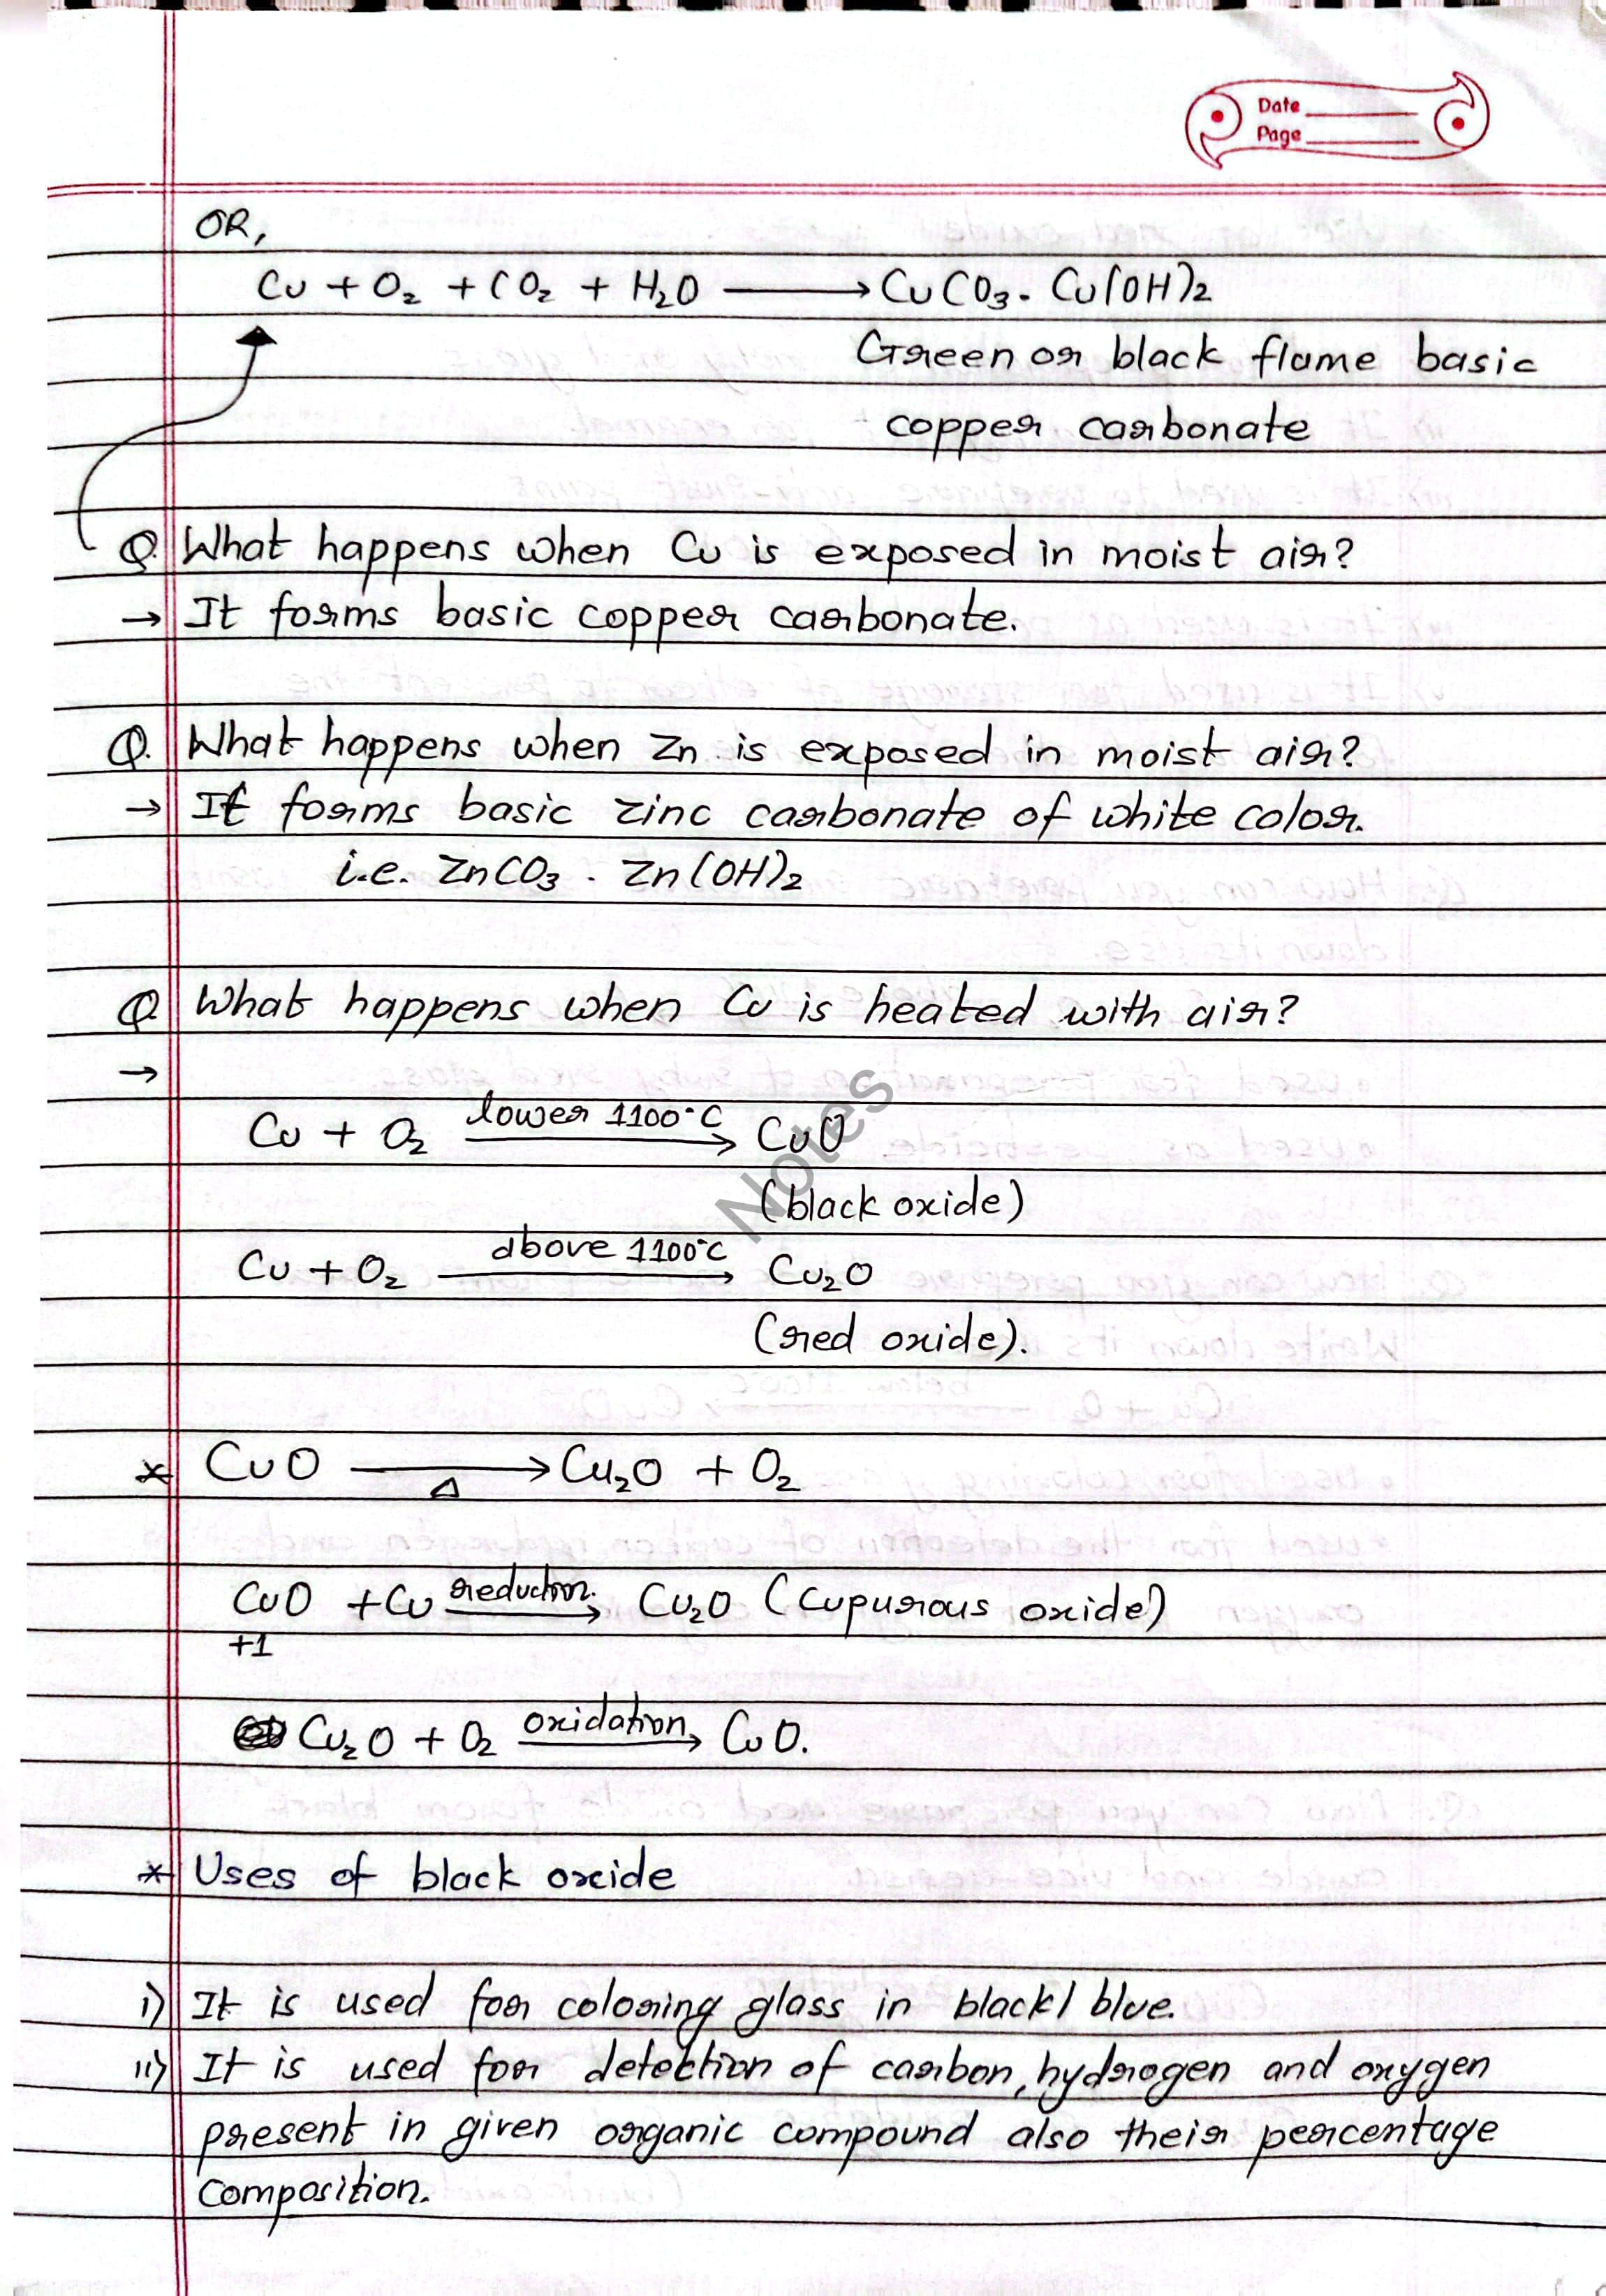 Date
Page
OR,
Cu + O₂ + CO₂ + H₂O ⟶ CuCO₃. Cu(OH)₂
Green or black flame basic
copper carbonate
Q. What happens when Cu is exposed in moist air?
→ It forms basic copper carbonate.
Q. What happens when Zn is exposed in moist air?
→ It forms basic zinc carbonate of white color.
i.e. ZnCO₃ . Zn(OH)₂
Q What happens when Cu is heated with air?
→
lower 1100°C
Cu + O₂ ⟶ CuO
(black oxide)
above 1100°C
Cu + O₂ ⟶ Cu₂O
(red oxide).
* CuO ⟶ Cu₂O + O₂
Δ
reduction.
CuO + Cu ⟶ Cu₂O (Cupurous oxide)
+1
oxidation
Cu₂O + O₂ ⟶ CuO.
* Uses of black oxide
i) It is used for coloring glass in black/ blue.
ii) It is used for detection of carbon, hydrogen and oxygen
present in given organic compound also their percentage
composition.
Notes